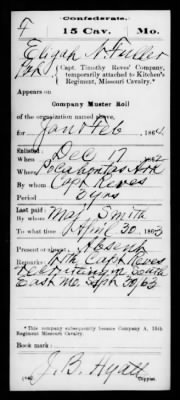 Confederate.
F 15 Cav. Mo.
Elijah N. Fuller
Pvt, Capt. Timothy Reves' Company,
temporarily attached to Kitchen's
Regiment, Missouri Cavalry.*
Appears on
Company Muster Roll
of the organization named above,
for Jan & Feb, 1864.
Enlisted:
When Dec 17, 1862
Where Pocahontas Ark
By whom Capt Reves
Period 3 yrs
Last paid:
By whom Maj. Smith
To what time April 30, 1863
Present or absent Absent
Remarks: With Capt Reves
recruiting in South
East Mo. Sept 30, 63
*This company subsequently became Company A, 15th
Regiment Missouri Cavalry.
Book mark:
J. B. Hyatt
Copyist.